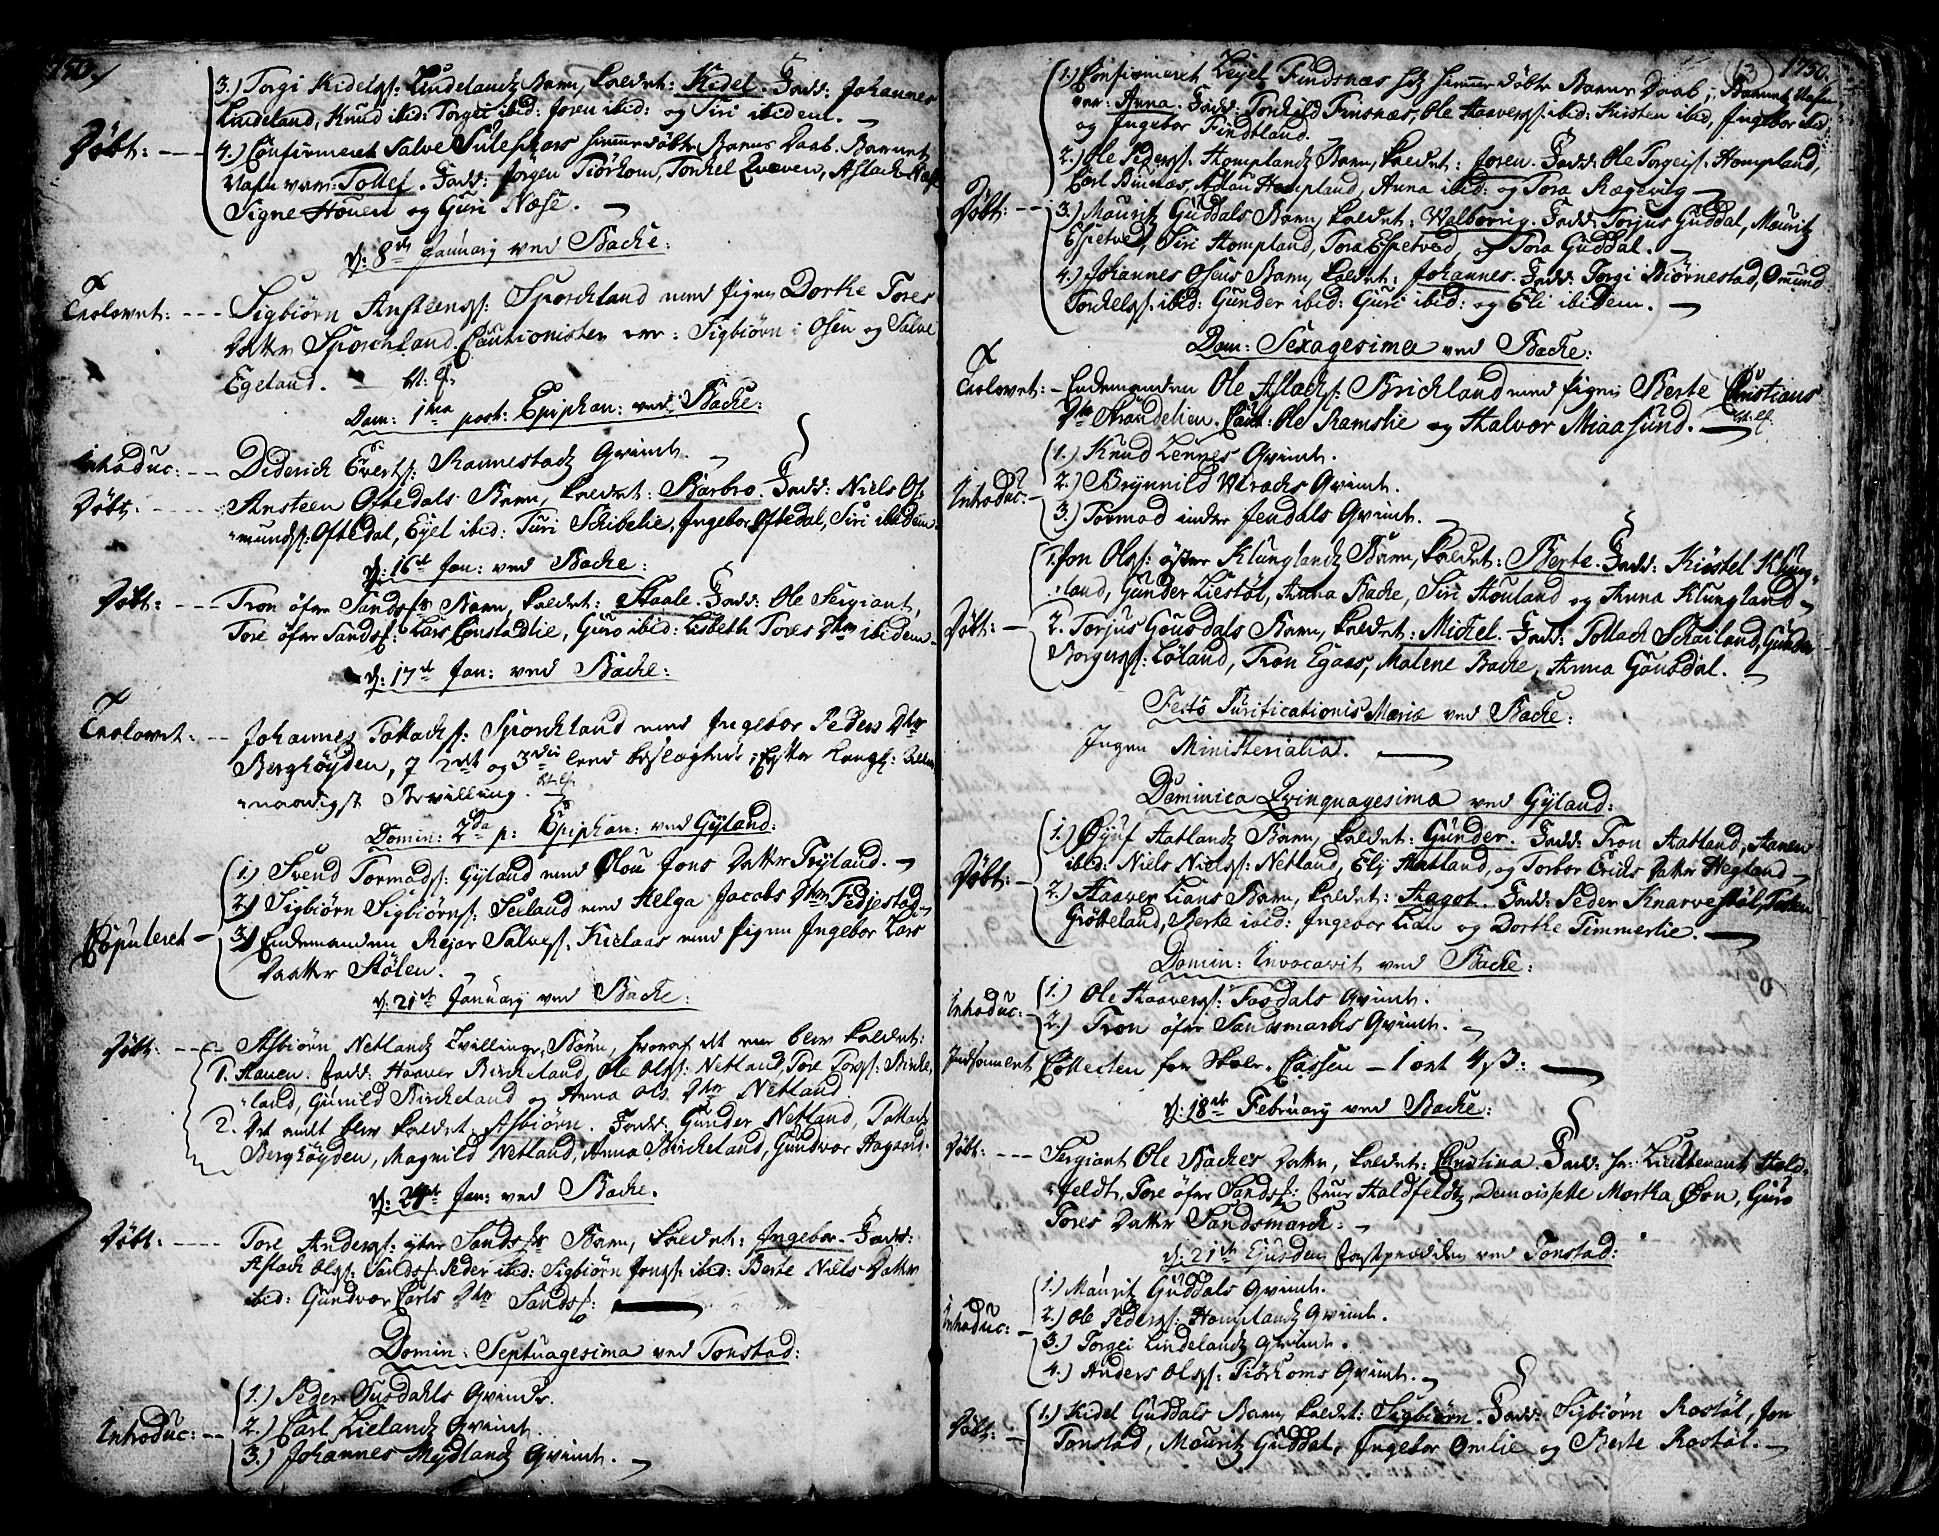 1750.
3.) Torgi Kidelss: Lindelandz Barn, kaldet: Kidel. Fadd: Johannes
Lindeland, Knud ibid: Torgei ibid: Joren ibid: og Siri ibidem.
Döbt: 4.) Confirmeret Salve Suleskars hjemmedöbte Barns Daab. Barnets
Nafn var: Tollef. Fadd: Jörgen Tiörhom, Torkel Qvæven, Aslach Næse
Signe Houen og Guri Næse.
d: 8de January ved Bache:
Trolovet: Sigbiörn Ansteenss: Sporchland med Pigen Dorthe Tores
Datter Sporchland. Cautionister ere: Sigbiörn i Osen og Salve
Egeland.
Dom: 1ma post: Epiphan: ved Bache:
Introduc: Diderich Evertss: Rannestadz Qvinde.
Döbt: Ansteen Oftedals Barn, kaldet: Barbro. Fadd: Niels Os-
mundss: Oftedal, Eyel ibid: Turi Schibelie, Ingebor Oftedal, Siri ibidem
d: 16de Jan: ved Bache:
Döbt: Tron öfre Sandss: Barn, kaldet: Staale. Fadd: Ole Sergiant,
Tore öfre Sandss: Lars Constadlie, Guro ibid: Lisbeth Tores Dtter ibidem
d: 17de Jan: ved Bache:
Trolovet: Johannes Tollachss: Sporchland med Ingebor Peders Dtter
Berghöyden, I 2det og 3die leed beslægtede, Efter Kongl: Aller-
naadigst Bevilling.
Domin: 2da p: Epiphan: ved Gyland:
1.) Svend Tormodss: Gyland med Olou Jons Datter Tryland.
2.) Sigbiörn Sigbiörnss: Seeland med Helga Jacobs Dtter Fedjestad
Copuleret 3.) Enkemanden Rejar Salvess: Kielaas med Pigen Ingebor Lars
Datter Stölen.
d: 21de January ved Bache:
Döbt: Asbiörn Netlandz Tvillinger, Börn, hvoraf det eene blev kaldet:
1. Hanen: Fadd: Haaver Birkeland, Ole Olss: Netland, Tore Torss: Birke-
land, Gunild Birkeland og Anna Ols Dtter Netland
2. Det andet blev kaldet: Asbiörn. Fadd: Gunder Netland, Tollach
Berghöyden, Magnild Netland, Anna Birkeland, Gundvor
d: 24de Jan: ved Bache.
Döbt: Tore Anderss: öfre Sandss: Barn, kaldet: Ingebor. Fadd:
Aslach Olss: Sandss: Peder ibid: Sigbiörn Jonss: ibid: Berte Niels Datter
ibid: Gundvor Carls Dtter Sandss:
Domin: Septuagesima ved Tonstad:
1.) Peder Ousdahls Qvinde.
Introduc: 2.) Carl Lielandz Qvinde.
3.) Johannes Mydlandz Qvinde.
(3) 1750.
1.) Confirmeret Eyel Findsnæs hos hjemmedöbte Barns Daab, Barnets Nafn
var: Anna. Fadd: Torkild Finsnæs, Ole Haaverss: ibid: Kirsten ibid, Ingebor ibid:
og Ingebor Findsland.
2.) Ole Pederss: Homplandz Barn, kaldet: Joren. Fadd: Ole Torgeiss: Hompland,
Carl Buunæs, Adlau Hompland, Anna ibid: og Tora Rægevig
Döbt: 3.) Mouritz Guddals Barn, kaldet: Walborrig. Fadd: Torjus Guddal, Mouritz
Espetved, Siri Hompland, Tora Espetved, og Tora Guddal.
4.) Johannes Osens Barn, kaldet: Johannes. Fadd: Torgi Biörnestad, Omund
Torkelss: ibid: Gunder ibid: Guri ibid: og Eli ibidem.
Dom: Sexagesima ved Bache:
Trolovet: Enkemanden Ole Aslachss: Brichland med Pigen Berte Christians
Dtr Strandelien. Caut: Ole Ramslie og Halvor Miaasund.
1.) Knud Lennes Qvinde.
Introduc 2.) Brynnild Utrachs Qvinde.
3.) Tormod indre Jendals Qvinde.
1. Jon Olss: öfre Klunglandz Barn, kaldet: Berte. Fadd: Kirstel Klung-
land, Gunder Liestöl, Anna Bache, Siri Houland og Anna Klungland
Döbt: 2. Torjus Gousdals Barn, kaldet: Michel. Fadd: Tollach Schailand, Gunder
Borgerss: Löland, Tron Egaas, Malene Bache, Anna Gousdal.
Festo Purificationis Mariæ ved Bache:
Ingen Ministerialia.
Dominica Qvinquagesima ved Gyland:
1.) Öyuf Aatlandz Barn, kaldet: Gunder. Fadd: Tron Aatland, Hanen
ibid: Niels Nielss: Netland, Eli Aatland, og Torbor Erichs Datter Hegland
Döbt: 2.) Haaver Lians Barn, kaldet: Aagot. Fadd: Peder Knarvestöl, Torkel
Grötteland, Berte ibid: Ingebor Lian og Dorthe Timmerlie.
Domin: Invocavit ved Bache:
Introduc: 1.) Ole Haaverss: Tosdals Qvinde.
2.) Tron öfre Sandsmarks Qvinde.
Indsamlet Collecten for Skole-Cassen – 1 ort 4 s:
d: 18de February ved Bache:
Döbt: Sergiant Ole Baches Datter, kaldet: Christina. Fadd: Hr: Lieutenant Hold-
feldt, Tore öfre Sandss: Frue Haldfeldtz, Demoiselle Martha Öen, Guro
Tores Datter Sandsmarck:
d: 21de Ejusdem fasteprædiken ved Tonstad:
1.) Mouritz Guddals Qvinde.
Introduc: 2.) Ole Pederss: Homplandz Qvinde.
3.) Torgei Lindelandz Qvinde.
4.) Anders Olss: Tiörhoms Qvinde.
Döbt: 1.) Kidel Guddals Barn, kaldet: Sigbiörn. Fadd: Sigbiörn Rostöl, Jon
Tonstad, Mouritz Guddal, Ingebor Omlie og Berte Rostöl.